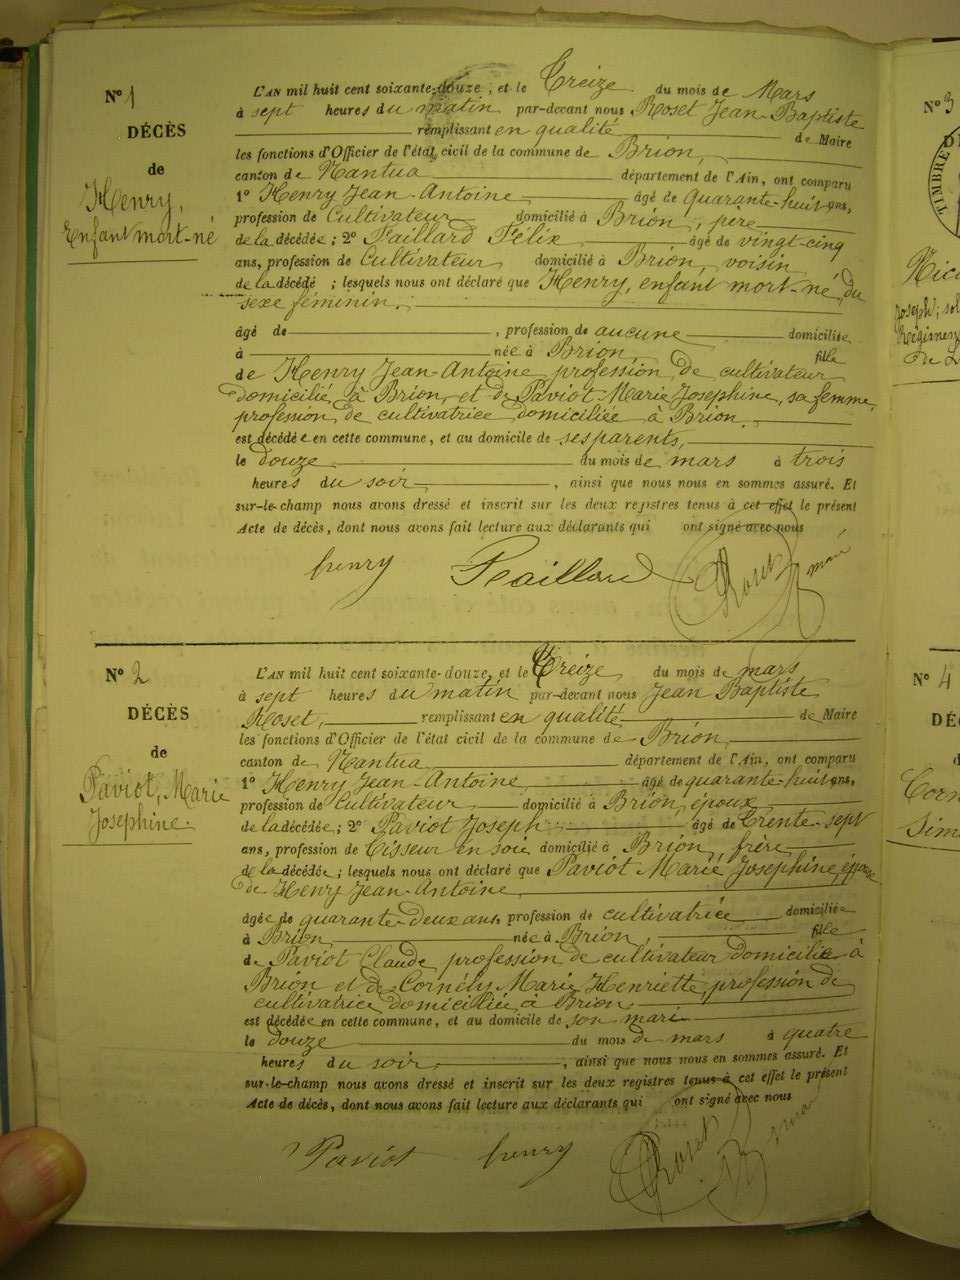 N° 1
DÉCÈS
de
Henry,
Enfant mort-né
L'AN mil huit cent soixante-douze, et le Treize du mois de Mars
à sept heures du matin par-devant nous Roset Jean-Baptiste
remplissant en qualité de Maire
les fonctions d'Officier de l'état civil de la commune de Brion,
canton de Nantua département de l'Ain, ont comparu
1° Henry Jean-Antoine âgé de Quarante-huit ans,
profession de Cultivateur domicilié à Brion, père
de la décédée; 2° Paillard Félix âgé de vingt-cinq
ans, profession de Cultivateur domicilié à Brion, voisin
de la décédé ; lesquels nous ont déclaré que Henry, enfant mort-né, du
sexe féminin.
âgé de , profession de aucune domiciliée
à née à Brion, fille
de Henry Jean-Antoine profession de cultivateur
domicilié à Brion, et de Paviot Marie Josephine, sa femme,
profession de cultivatrice domiciliée à Brion.
est décédée en cette commune, et au domicile de ses parents,
le douze du mois de mars à trois
heures du soir , ainsi que nous nous en sommes assuré. Et
sur-le-champ nous avons dressé et inscrit sur les deux registres tenus à cet effet le présent
Acte de décès, dont nous avons fait lecture aux déclarants qui ont signé avec nous
henry Paillard Roset maire
N° 2
DÉCÈS
de
Paviot, Marie
Josephine.
L'AN mil huit cent soixante-douze, et le Treize du mois de mars
à sept heures du matin par-devant nous Jean Baptiste
Roset, remplissant en qualité de Maire
les fonctions d'Officier de l'état civil de la commune de Brion,
canton de Nantua département de l'Ain, ont comparu
1° Henry Jean-Antoine, âgé de quarante-huit ans,
profession de Cultivateur domicilié à Brion, époux
de la décédée; 2° Paviot Joseph, âgé de Trente-sept
ans, profession de Tisseur en soie domicilié à Brion, frère
de la décédée; lesquels nous ont déclaré que Paviot Marie Josephine, épouse
de Henry Jean-Antoine,
âgée de quarante-deux ans, profession de cultivatrice domiciliée
à Brion, née à Brion, fille
de Paviot Claude, profession de cultivateur domicilié à
Brion et de Cornély Marie Henriette profession de
cultivatrice domiciliée, à Brion,
est décédée en cette commune, et au domicile de son mari
le douze du mois de mars à quatre
heures du soir, , ainsi que nous nous en sommes assuré. Et
sur-le-champ nous avons dressé et inscrit sur les deux registres tenus à cet effet le présent
Acte de décès, dont nous avons fait lecture aux déclarants qui ont signé avec nous
Paviot henry Roset maire
N° 3
TIMBRE
Joseph, sol
N° 4
DÉ
Corn
Sim